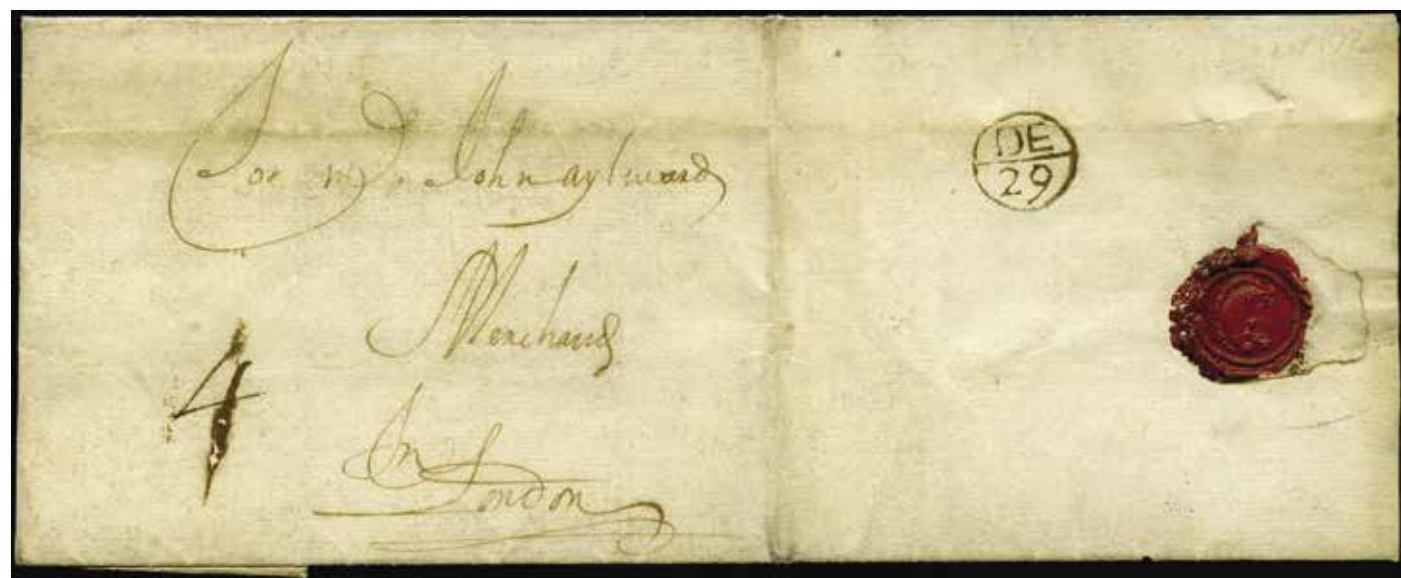 For mr John aylward
Merchand
In
London
4
DE
29